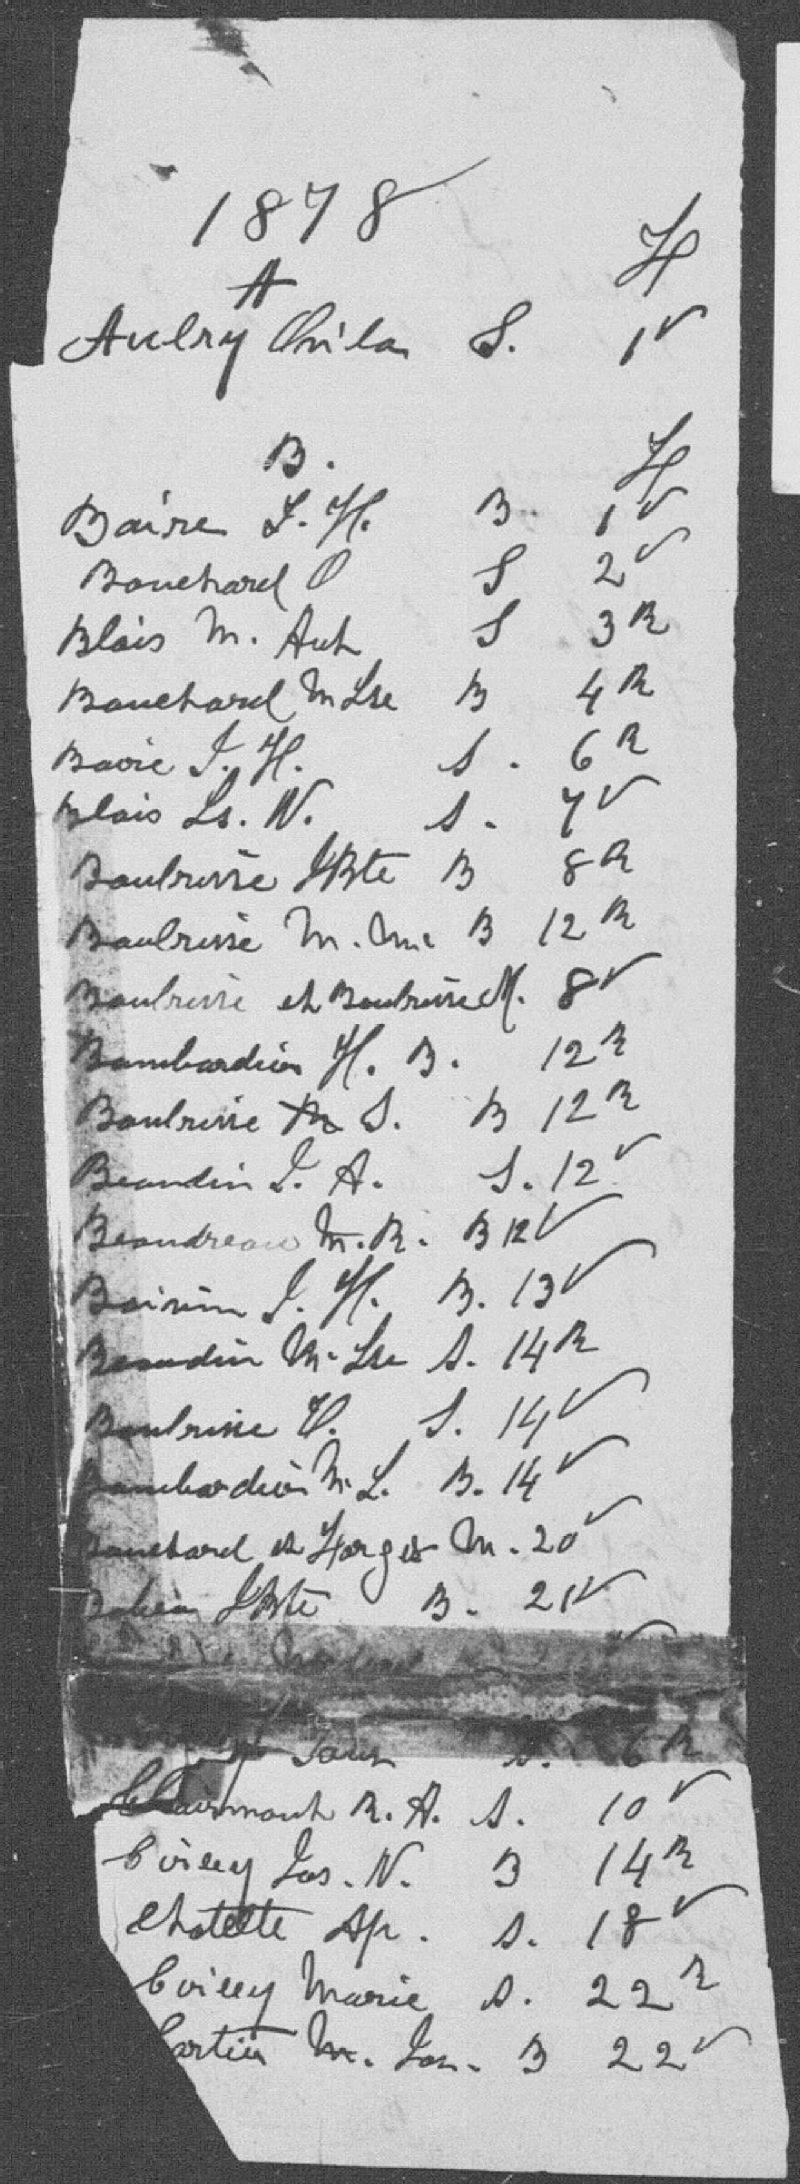 1878
A H
Aubry Ovila S. 1 v
B. H
Boire J. H. B. 1 v
Bouchard O S 2 v
Blais M. Ant S 3 R
Bouchard M Lse B 4 R
Boire J. H. S. 6 R
Blais Ls. N. S. 7 v
Boulrisse JBte B 8 R
Boulrisse M. B 12 R
Boulrisse et Boulrisse M. 8 v
Bombardier H. B. 12 R
Boulrisse S. B 12 R
Beaudin J. A. S. 12 v
Beaudreau M. R. B 12 v
Boivin J. H. B. 13 v
Beaudin M. Lse S. 14 R
Boulrisse V. S. 14 v
Bombardier M. L. B. 14 v
Bouchard et Forget M. 20 v
JBte B. 21 v
S. 6 R
Clairmont R. A. S. 10 v
Coiley Jos. N. B 14 R
Chatelte Ap. S. 18 v
Coiley Marie S. 22 R
M. Jos. B 22 v